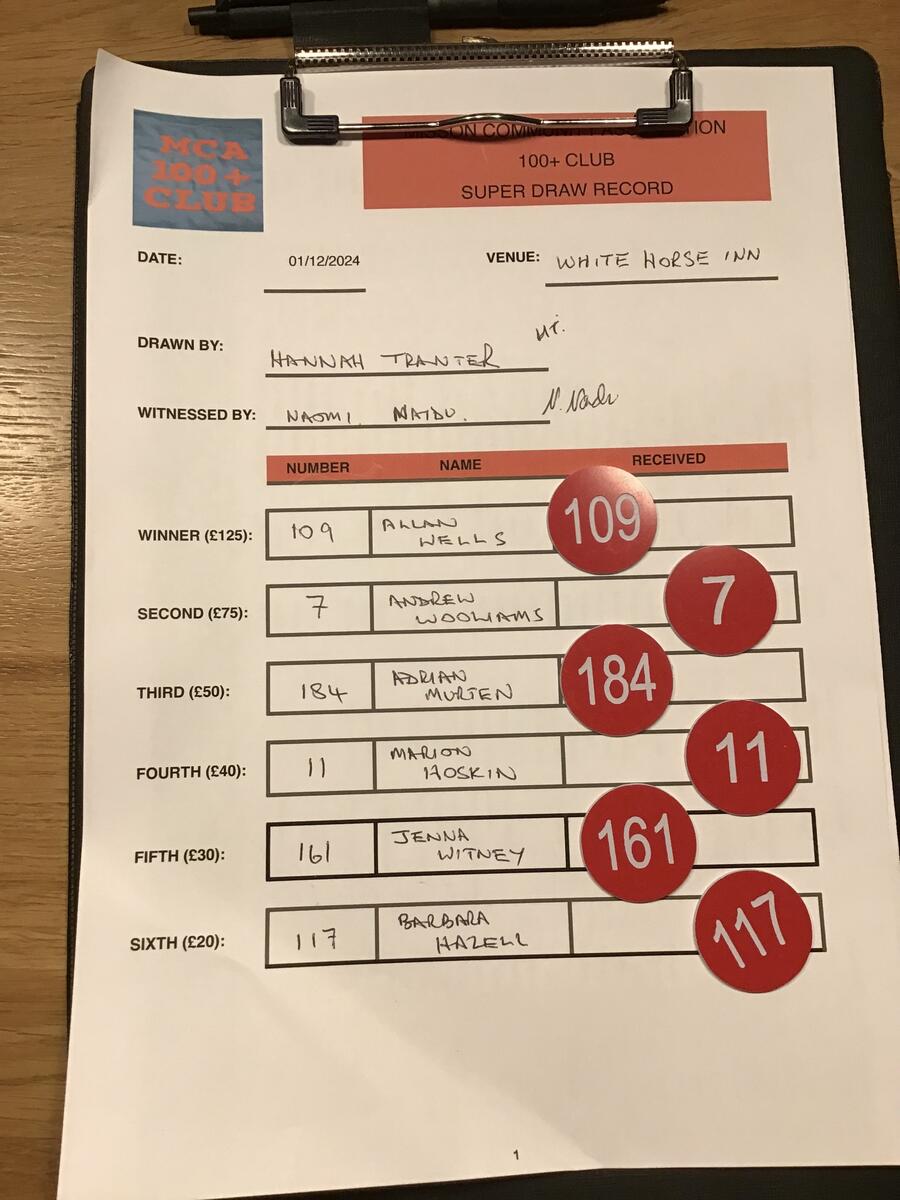 MCA
100+
CLUB
MISSON COMMUNITY ASSOCIATION
100+ CLUB
SUPER DRAW RECORD
DATE: 01/12/2024 VENUE: WHITE HORSE INN
DRAWN BY: HANNAH TRANTER HT.
WITNESSED BY: NAOMI NAIDU. N. Naidu
NUMBER NAME RECEIVED
WINNER (£125): 109 ALLAN WELLS 109
SECOND (£75): 7 ANDREW WOOLIAMS 7
THIRD (£50): 184 ADRIAN MURTEN 184
FOURTH (£40): 11 MARION HOSKIN 11
FIFTH (£30): 161 JENNA WITNEY 161
SIXTH (£20): 117 BARBARA HAZELL 117
1